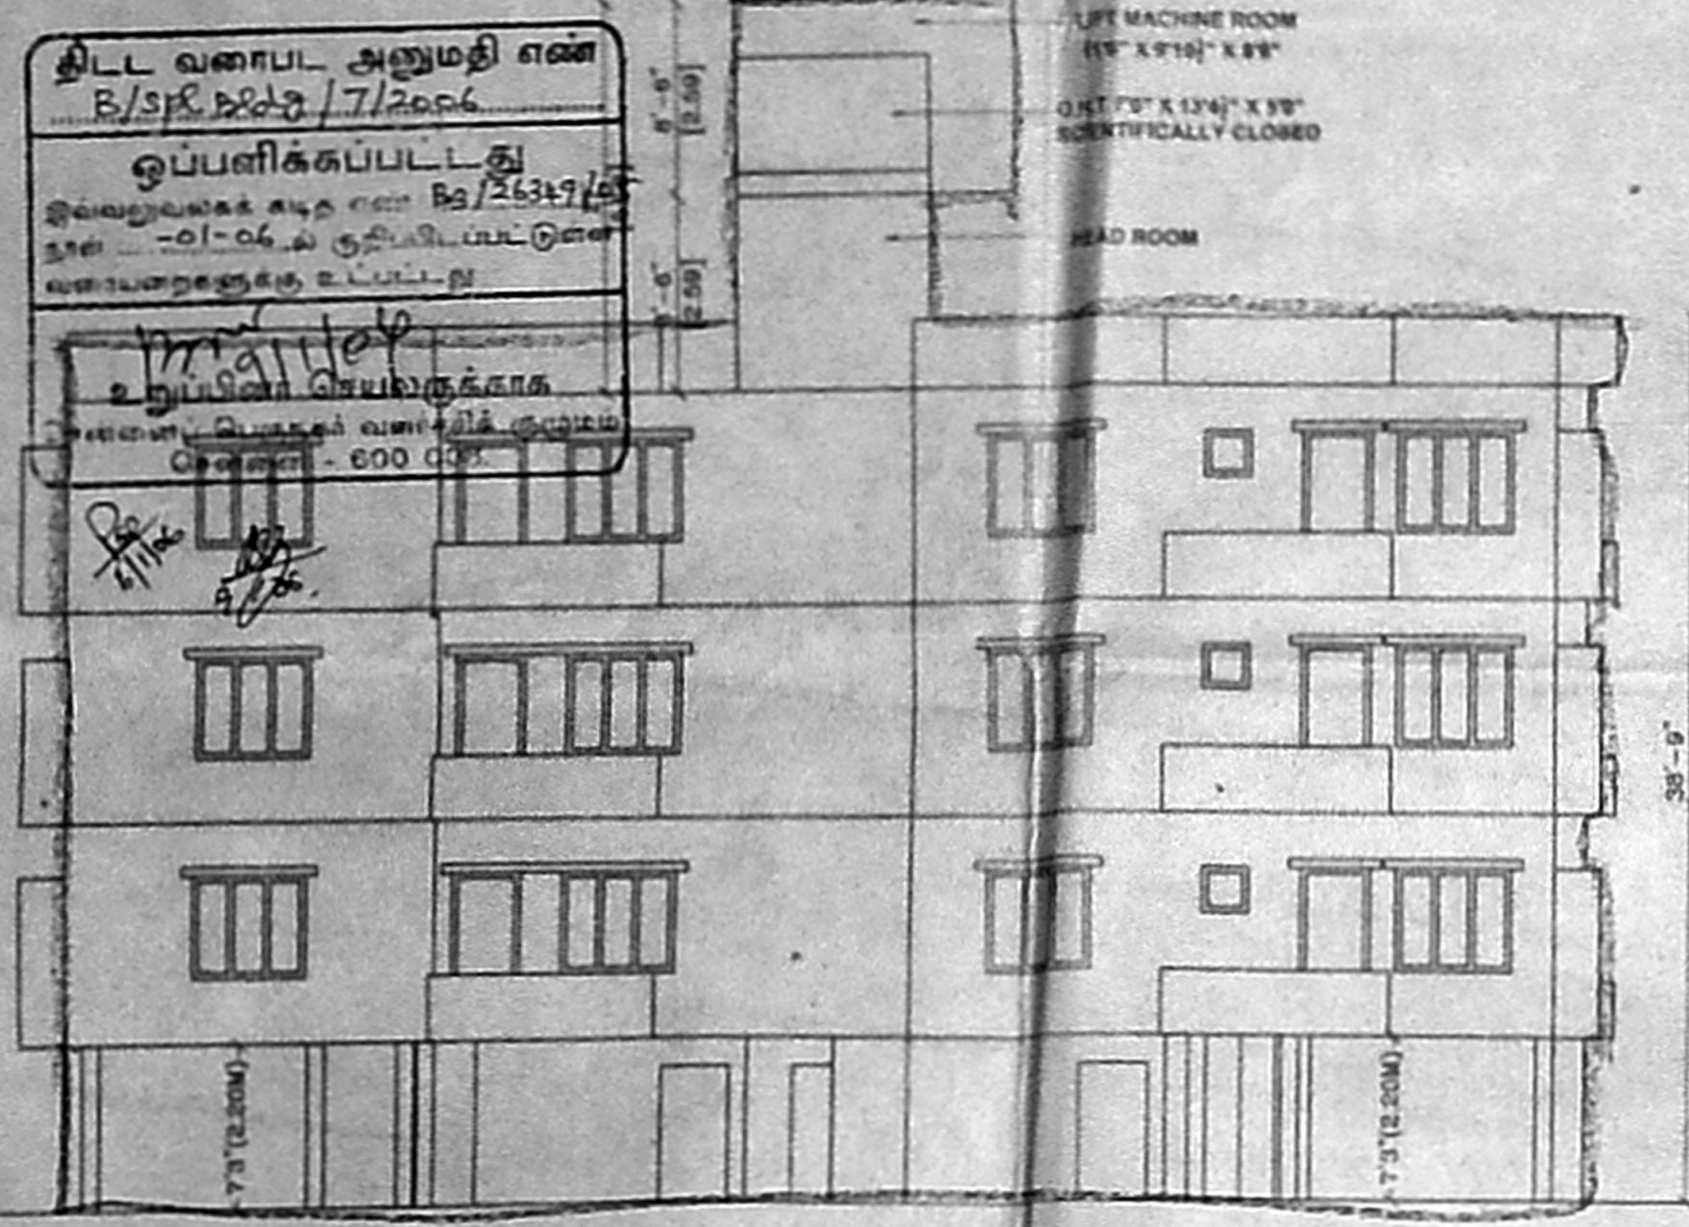 திட்ட வரைபட அனுமதி எண்
B/Spl Bldg/7/2006
ஒப்பளிக்கப்பட்டது
இவ்வலுவலகக் கடித எண் B3/26349/05
நாள் -01-06 ல் குறிப்பிடப்பட்டுள்ள
வரையறைகளுக்கு உட்பட்டது
9/1/06
உறுப்பினர் செயலருக்காக
சென்னைப் பெருநகர் வளர்ச்சிக் குழுமம்
சென்னை - 600 008.
6/1/06
LIFT MACHINE ROOM
X 8'8"
SCENTIFICALLY CLOSED
HEAD ROOM
8'-6"
[2.59]
8'-6"
[2.59]
38'-9"
7'3"(2.20M)
7'3"(2.20M)